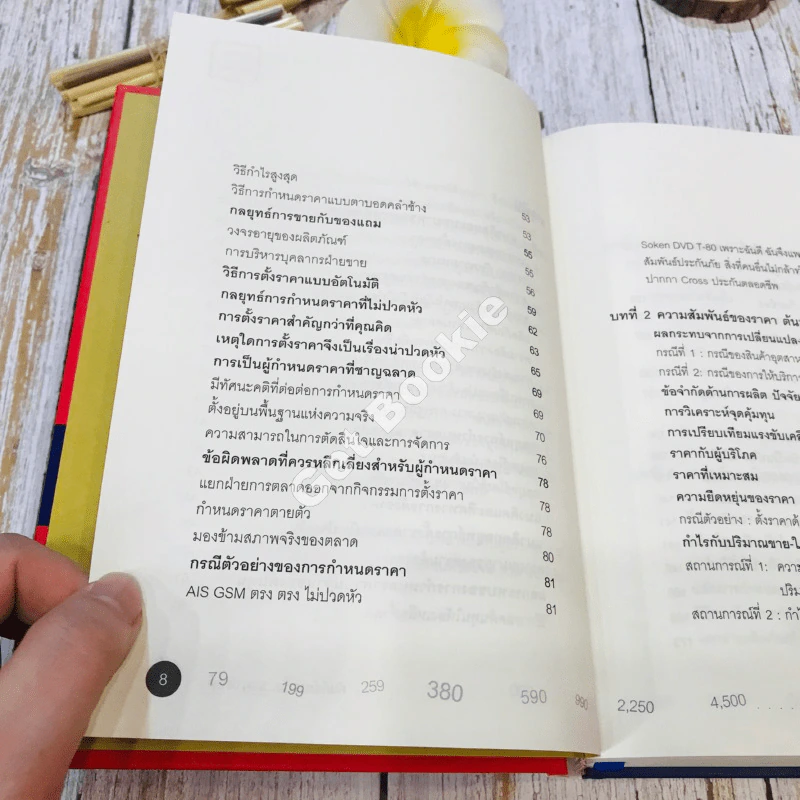 วิธีกำไรสูงสุด 53
วิธีการกำหนดราคาแบบตาบอดคลำช้าง 53
กลยุทธ์การขายกับของแถม 55
วงจรอายุของผลิตภัณฑ์ 56
การบริหารบุคลากรฝ่ายขาย 56
วิธีการตั้งราคาแบบอัตโนมัติ 59
กลยุทธ์การกำหนดราคาที่ไม่ปวดหัว 62
การตั้งราคาสำคัญกว่าที่คุณคิด 63
เหตุใดการตั้งราคาจึงเป็นเรื่องน่าปวดหัว 65
การเป็นผู้กำหนดราคาที่ชาญฉลาด 69
มีทัศนะคติที่ต่อต่อการกำหนดราคา 69
ตั้งอยู่บนพื้นฐานแห่งความจริง 70
ความสามารถในการตัดสินใจและการจัดการ 76
ข้อผิดพลาดที่ควรหลีกเลี่ยงสำหรับผู้กำหนดราคา 78
แยกฝ่ายการตลาดออกจากกิจกรรมการตั้งราคา 78
กำหนดราคาตายตัว 78
มองข้ามสภาพจริงของตลาด 80
กรณีตัวอย่างของการกำหนดราคา 81
AIS GSM ตรง ตรง ไม่ปวดหัว 81
8 79 199 259 380 590 990
Soken DVD T-80 เพราะฉันดี ฉันจึงแพ
สัมพันธ์ประกันภัย สิ่งที่คนอื่นไม่กล้าท
ปากกา Cross ประกันตลอดชีพ
บทที่ 2 ความสัมพันธ์ของราคา ต้น
ผลกระทบจากการเปลี่ยนแปลง
กรณีที่ 1 : กรณีของสินค้าอุตสาห
กรณีที่ 2: กรณีของการให้บริการ
ข้อจำกัดด้านการผลิต ปัจจัย
การวิเคราะห์จุดคุ้มทุน
การเปรียบเทียมแรงขับเคลื่
ราคากับผู้บริโภค
ราคาที่เหมาะสม
ความยืดหยุ่นของราคา
กรณีตัวอย่าง : ตั้งราคาด้
กำไรกับปริมาณขาย-ใ
สถานการณ์ที่ 1: ความ
ปริม
สถานการณ์ที่ 2 : กำไ
2,250 4,500 . . . .
Got Bookie